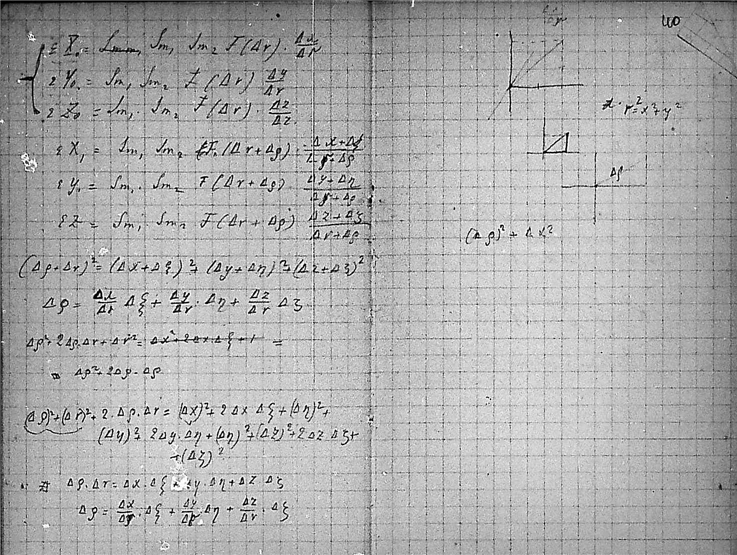 Σ X₀ = Sm₁ Sm₂ F(Δr) · Δx/Δr
Σ Y₀ = Sm₁ Sm₂ F(Δr) Δy/Δr
Σ Z₀ = Sm₁ Sm₂ F(Δr) · Δz/Δz
Σ X₁ = Sm₁ Sm₂ F(Δr+Δρ) · Δx+Δξ/Δr+Δρ
Σ Y₀ = Sm₁ Sm₂ F(Δr+Δρ) Δy+Δη/Δr+Δρ
Σ Z = Sm₁ Sm₂ F(Δr+Δρ) Δz+Δζ/Δr+Δρ
(Δρ+Δr)² = (Δx+Δξ)² + (Δy+Δη)² + (Δz+Δζ)²
Δρ = Δx/Δr Δξ + Δy/Δr · Δη + Δz/Δr Δζ
Δρ² + 2Δρ·Δr + Δr² = Δx² + 2Δx·Δξ + 1 =
= Δρ² + 2Δρ · Δρ
(Δρ)² + (Δr)² + 2·Δρ·Δr = (Δx)² + 2Δx Δξ + (Δη)² +
(Δy)² + 2Δy·Δη + (Δη)² + (Δz)² + 2Δz Δζ +
+ (Δζ)²
Δρ·Δr = Δx·Δξ + Δy·Δη + Δz Δζ
Δρ = Δx/Δr · Δξ + Δy/Δr · Δη + Δz/Δr · Δξ
40
r² = x² + y²
Δρ
(Δρ)² + Δx²